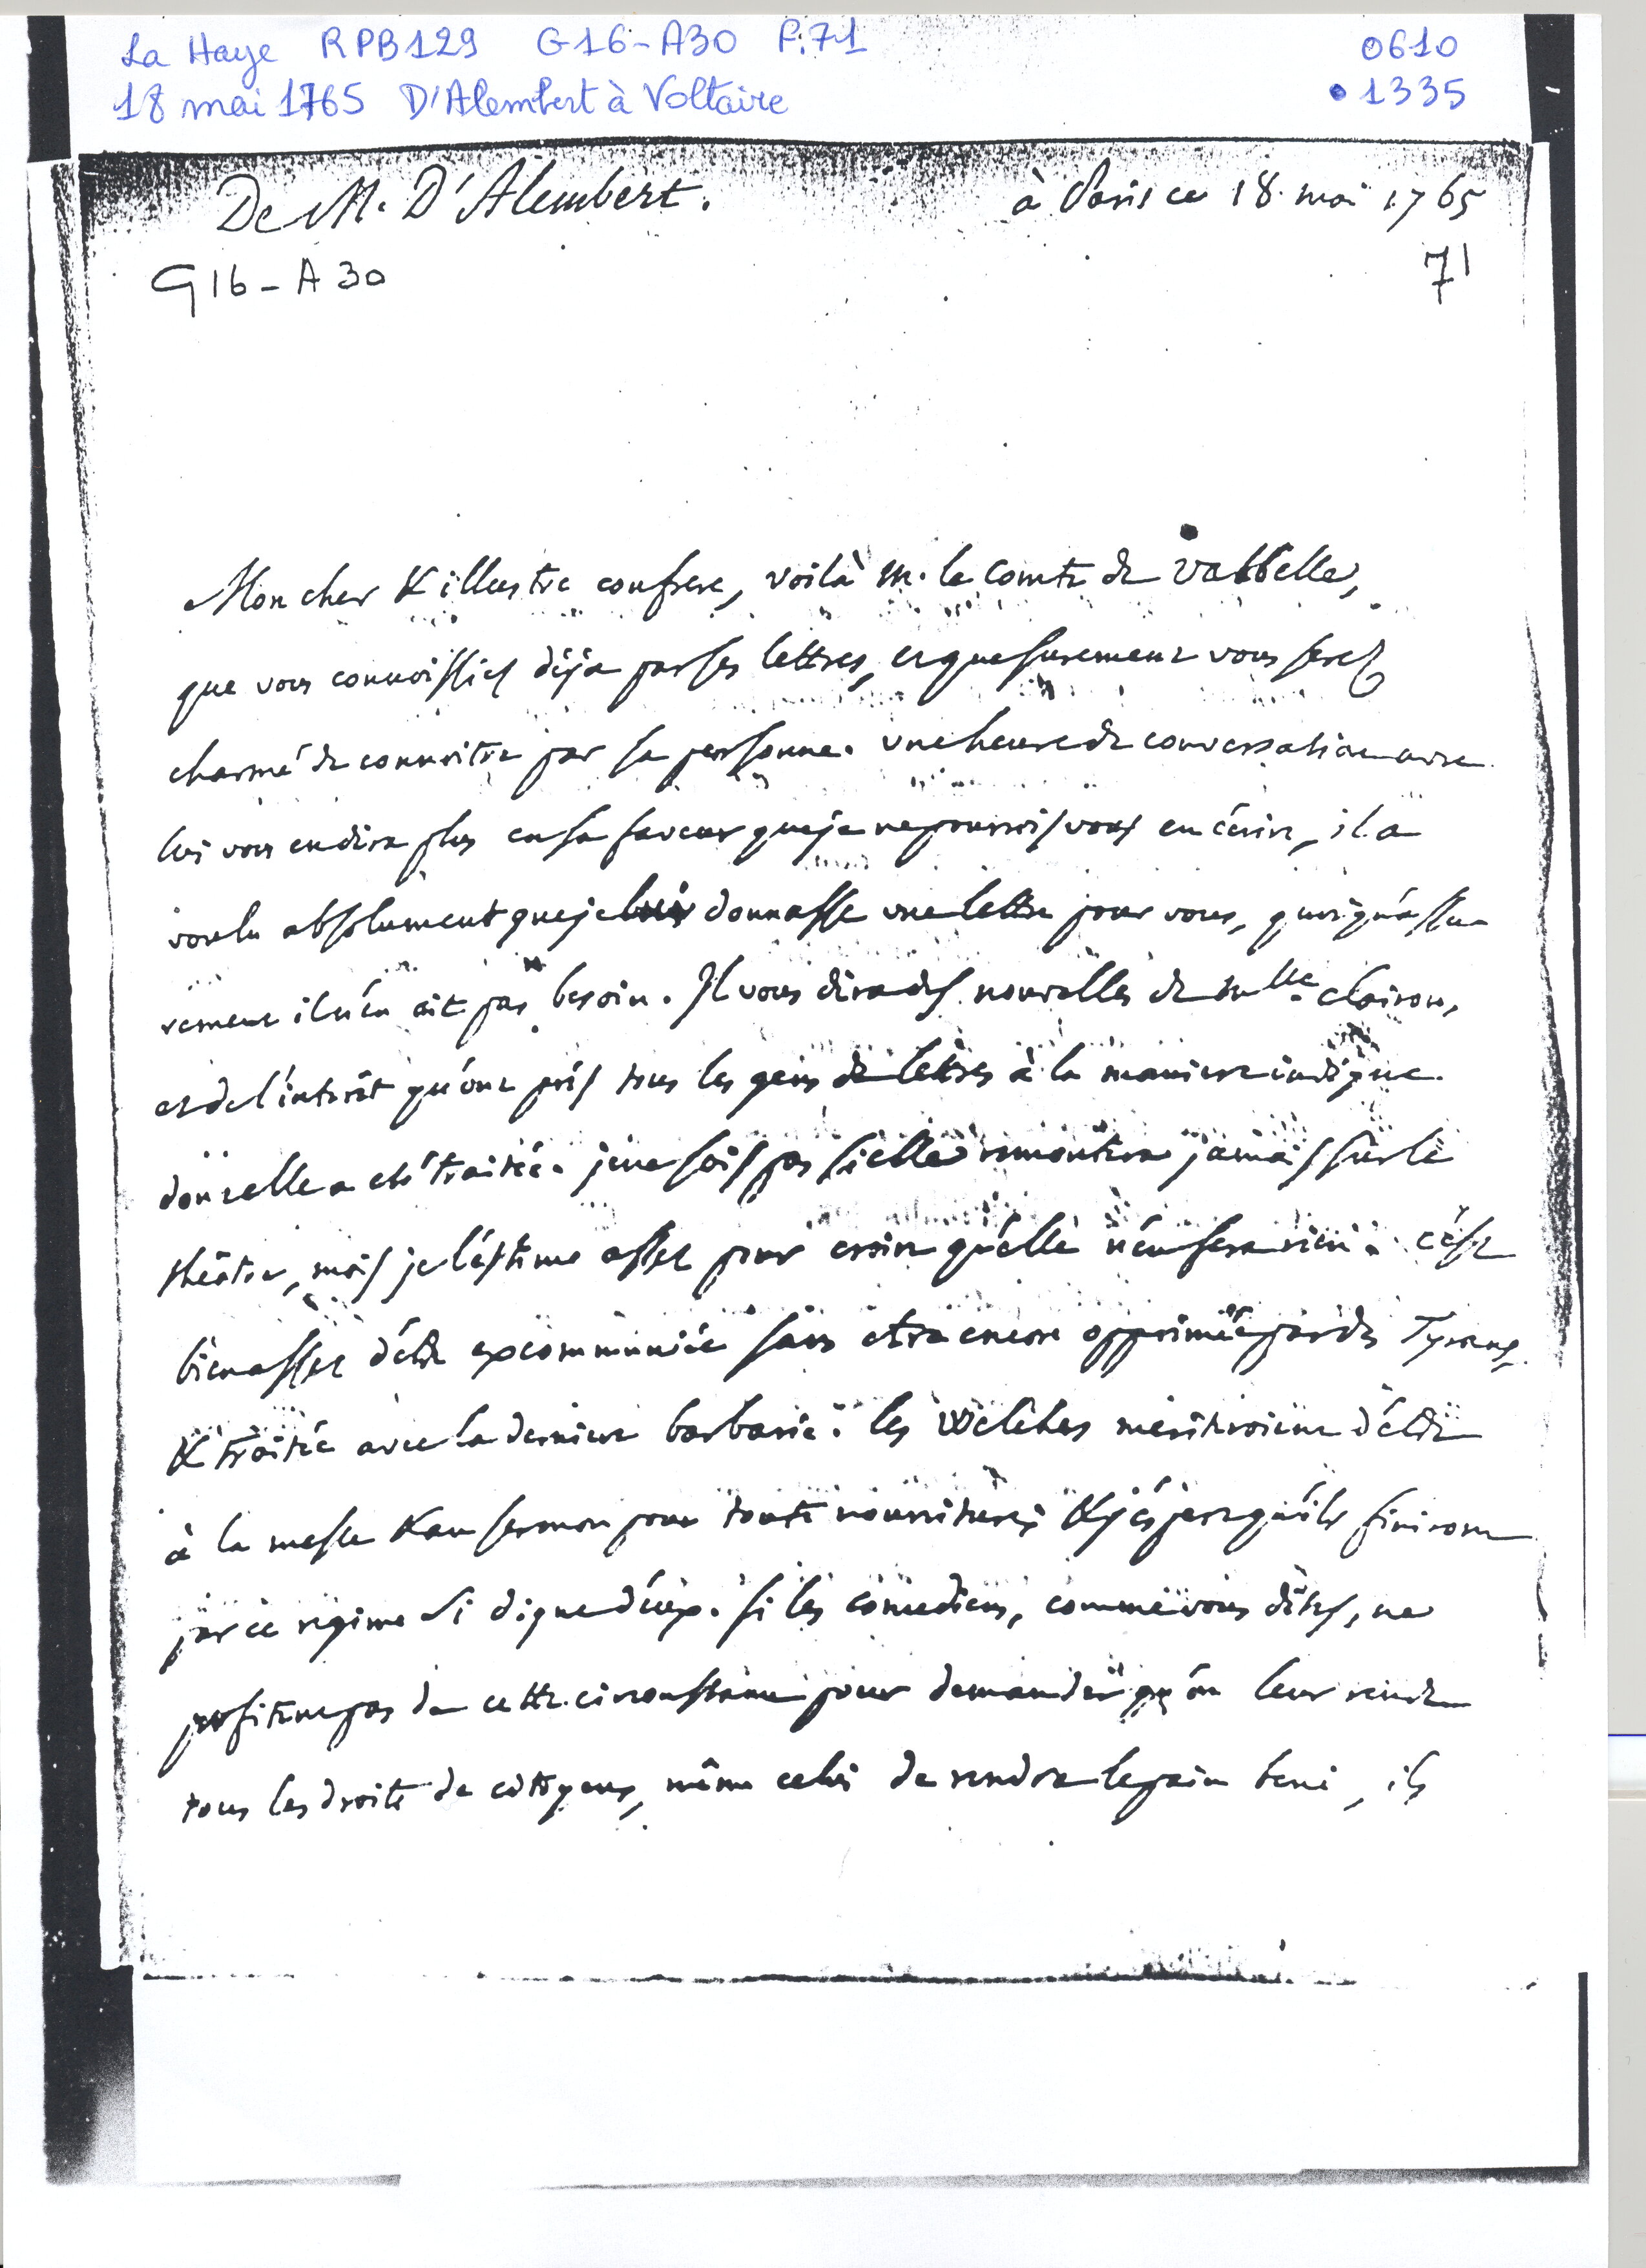 La Haye RPB129 G16-A30 P.71
0610
18 mai 1765 D'Alembert à Voltaire
1335
De M. D'Alembert.
à Paris ce 18 mai 1765
G16-A30
71
Mon cher & illustre confrere, voilà m. le comte de Valbelle,
que vous connoissiés déja par ses lettres, et que surement vous serez
charmé de connoitre par sa personne. une heure de conversation avec
lui vous en dira plus en sa faveur que je ne pourrois vous en écrire, il a
voulu absolument que je lui donnasse une lettre pour vous, quoiqu'assu
rement il n'en ait pas besoin. Il vous dira des nouvelles de mlle. clairon,
et de l'intérêt qu'ont pris tous les gens de lettres à la maniere indigne
dont elle a eté traitée. je ne sais pas si elle remontera jamais sur le
théâtre, mais je l'estime assez pour croire qu'elle n'en fera rien. c'est
bien assez d'être excommuniée sans etre encore opprimée par des Tyrans,
& traitée avec la derniere barbarie. les Welches meriteroient d'être
à la messe & au sermon pour toute nourriture; & j'espere qu'ils finiront
par ce regime si digne d'eux. si les comediens, comme vous dites, ne
profitent pas de cette circonstance pour demander qu'on leur rende
tous les droits de citoyens, même celui de rendre le pain beni, ils